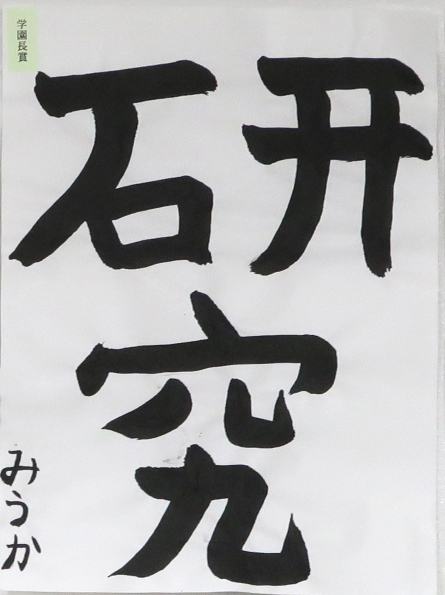 学園長賞
研究
みうか